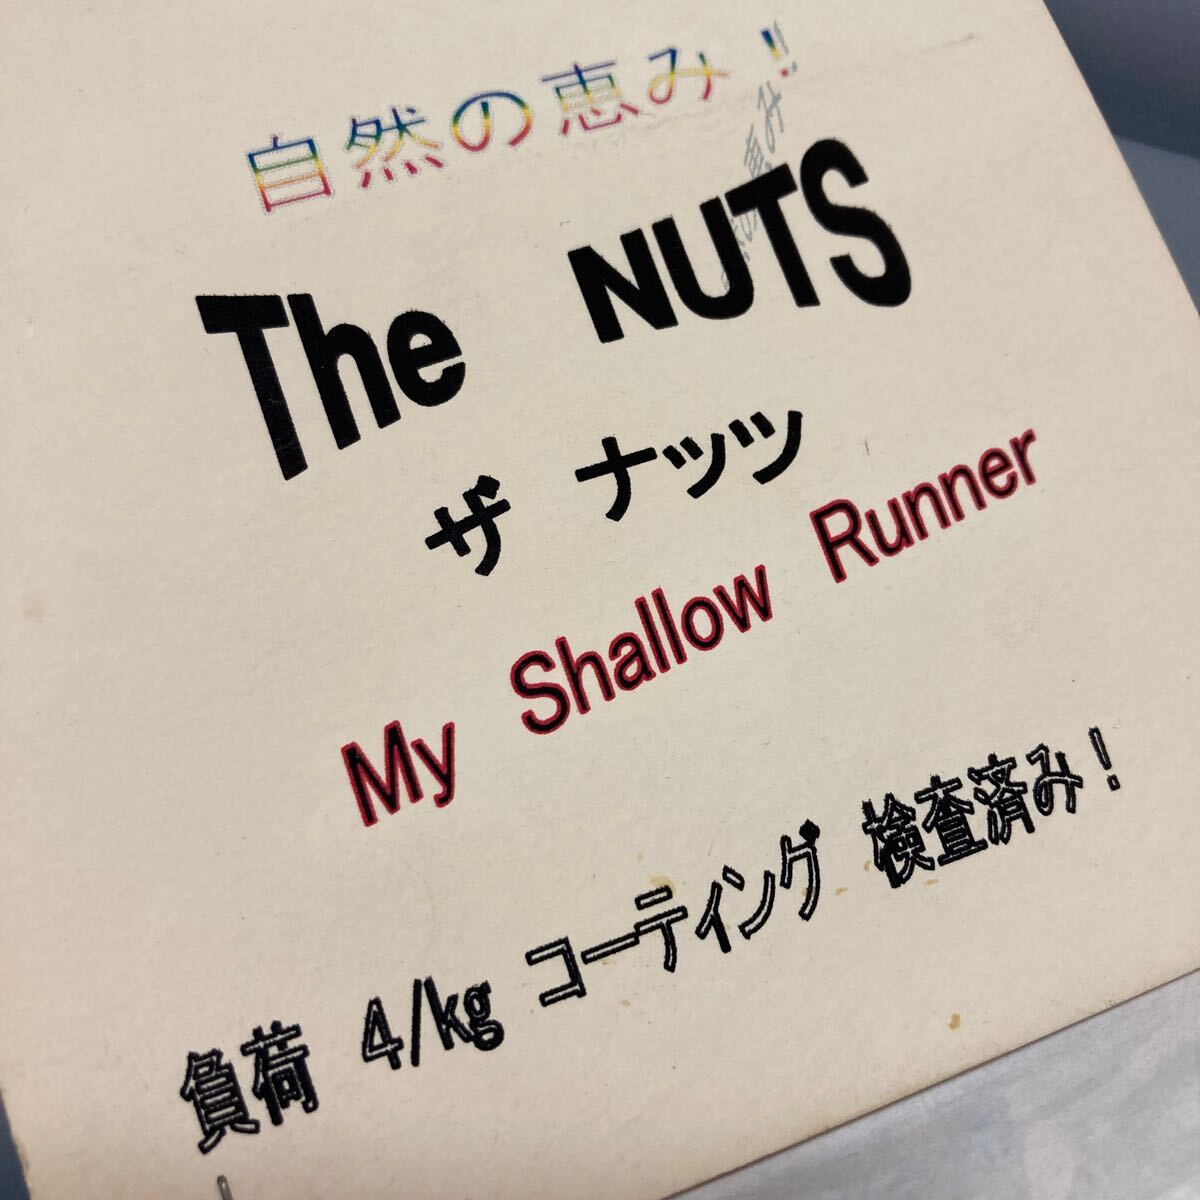 自然の恵み!!
The NUTS
ザ ナッツ
My Shallow Runner
負荷 4/kg コーティング 検査済み!